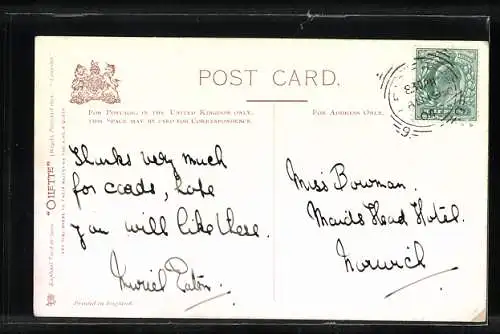 POST CARD.
FOR POSTING IN THE UNITED KINGDOM ONLY,
THIS SPACE MAY BE USED FOR CORRESPONDENCE.
FOR ADDRESS ONLY.
"OILETTE"
Thanks very much
for cards, hope
you will like these.
Muriel Eaton.
Printed in England.
Miss Bowman.
Maids Head Hotel.
Norwich